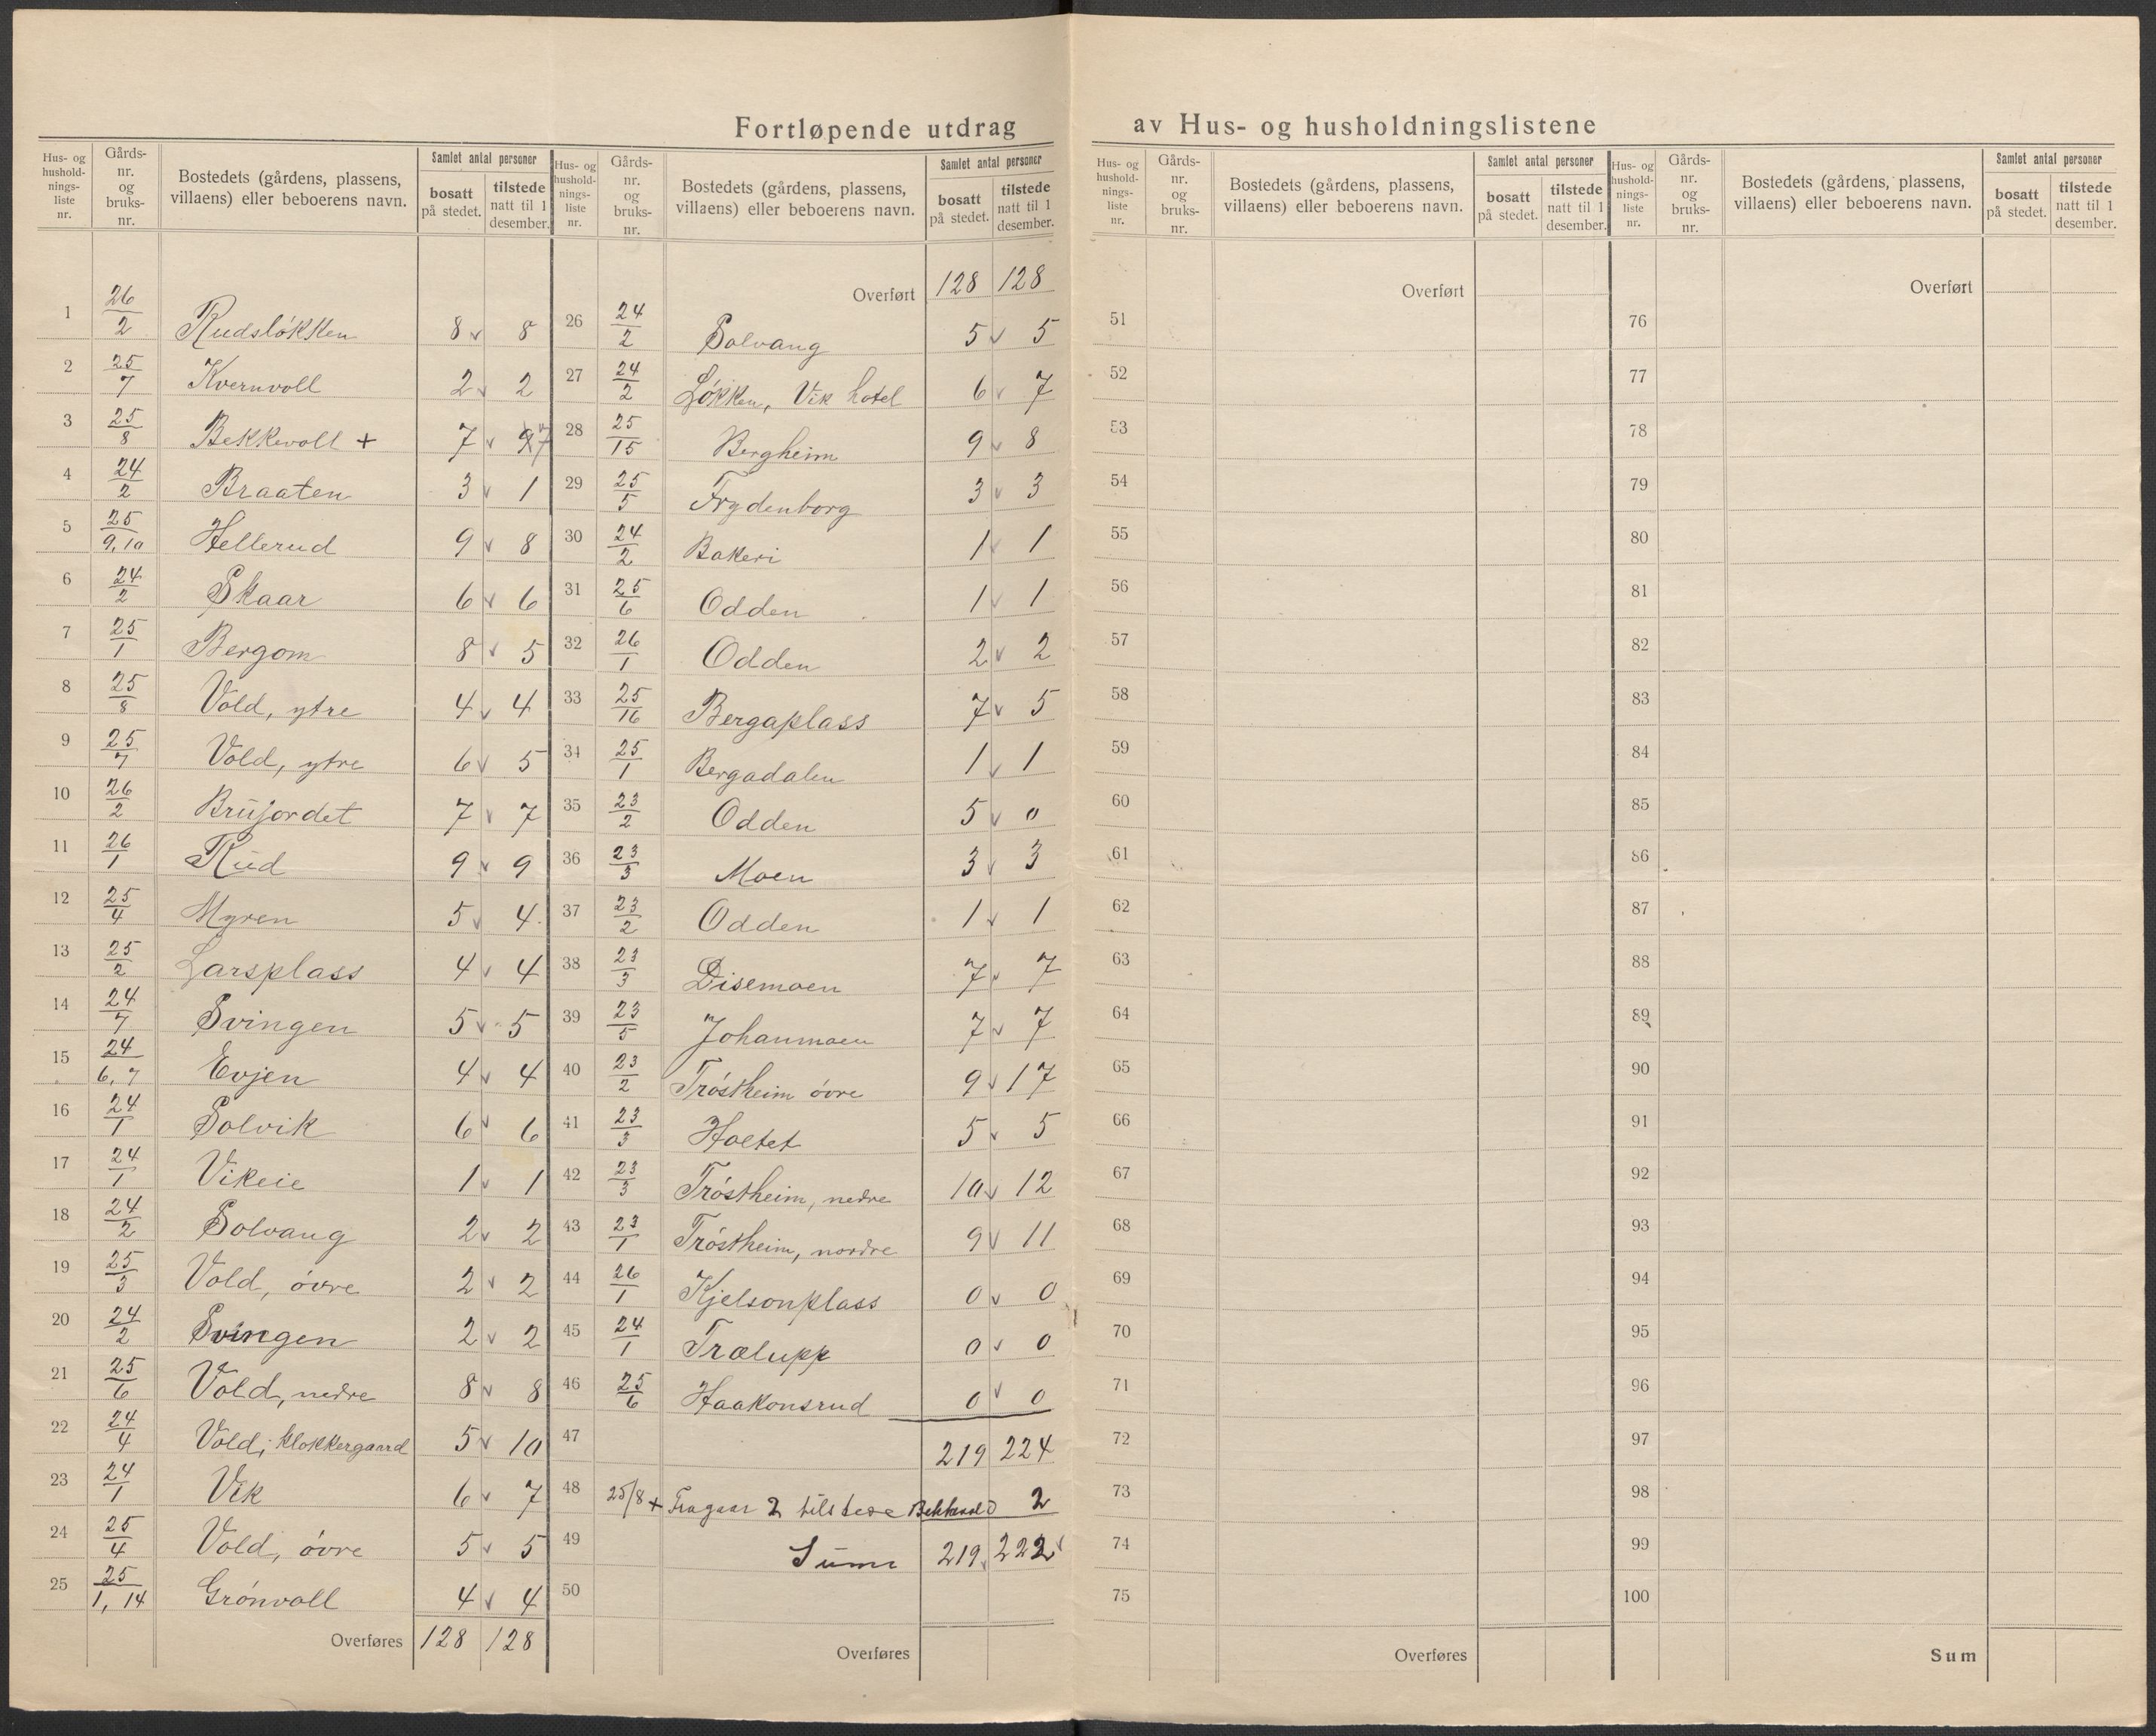 Fortløpende utdrag av Hus- og husholdningslistene
Hus- og husholdnings- liste nr. | Gårds- nr. og bruks- nr. | Bostedets (gårdens, plassens, villaens) eller beboerens navn. | Samlet antal personer | bosatt på stedet. | tilstede natt til 1 desember.
1 26/2 Rudsløkken 8 v 8
2 25/7 Kvernvoll 2 v 2
3 25/8 Bekkevoll + 7 v 9 7
4 24/2 Braaten 3 v 1
5 25/9,10 Hellerud 9 v 8
6 24/2 Skaar 6 v 6
7 25/1 Bergom 8 v 5
8 25/8 Vold, ytre 4 v 4
9 25/7 Vold, ytre 6 v 5
10 26/2 Brujordet 7 v 7
11 26/1 Rud 9 v 9
12 25/4 Myren 5 v 4
13 25/2 Larsplass 4 v 4
14 24/7 Svingen 5 v 5
15 24/6,7 Evjen 4 v 4
16 24/1 Solvik 6 v 6
17 24/1 Vikeie 1 v 1
18 24/2 Solvang 2 v 2
19 25/3 Vold, övre 2 v 2
20 24/2 Svingen 2 v 2
21 25/6 Vold, nedre 8 v 8
22 24/4 Vold, klokkergaard 5 v 10
23 24/1 Vik 6 v 7
24 25/4 Vold, övre 5 v 5
25 25/1, 14 Grönvoll 4 v 4
Overføres 128 128
Hus- og hushold- nings- liste nr. | Gårds- nr. og bruks- nr. | Bostedets (gårdens, plassens, villaens) eller beboerens navn. | Samlet antal personer | bosatt på stedet. | tilstede natt til 1 desember.
Overført 128 128
26 24/2 Solvang 5 v 5
27 24/2 Løkken, Vik hotel 6 v 7
28 25/15 Bergheim 9 v 8
29 25/5 Frydenborg 3 v 3
30 24/2 Bakeri 1 v 1
31 25/6 Odden 1 v 1
32 26/1 Odden 2 v 2
33 25/16 Bergaplass 7 v 5
34 25/1 Bergadalen 1 v 1
35 23/2 Odden 5 v 0
36 23/3 Moen 3 v 3
37 23/2 Odden 1 v 1
38 23/3 Disemoen 7 v 7
39 23/5 Johanmoen 7 v 7
40 23/2 Tröstheim övre 9 v 17
41 23/3 Holtet 5 v 5
42 23/3 Tröstheim, nedre 10 v 12
43 23/1 Tröstheim, nordre 9 v 11
44 26/1 Kjelsonplass 0 v 0
45 24/1 Trælupp 0 v 0
46 25/6 Haakonsrud 0 v 0
47 219 224
48 25/8 + Fragaar 2 tilstede Bekkevold 2
49 Sum 219 v 222 v
50
Overføres
Hus- og hushold- nings- liste nr. | Gårds- nr. og bruks- nr. | Bostedets (gårdens, plassens, villaens) eller beboerens navn. | Samlet antal personer | bosatt på stedet. | tilstede natt til 1 desember.
Overført
51
52
53
54
55
56
57
58
59
60
61
62
63
64
65
66
67
68
69
70
71
72
73
74
75
Overføres
Hus- og hushold- nings- liste nr. | Gårds- nr. og bruks- nr. | Bostedets (gårdens, plassens, villaens) eller beboerens navn. | Samlet antal personer | bosatt på stedet. | tilstede natt til 1 desember.
Overført
76
77
78
79
80
81
82
83
84
85
86
87
88
89
90
91
92
93
94
95
96
97
98
99
100
Sum